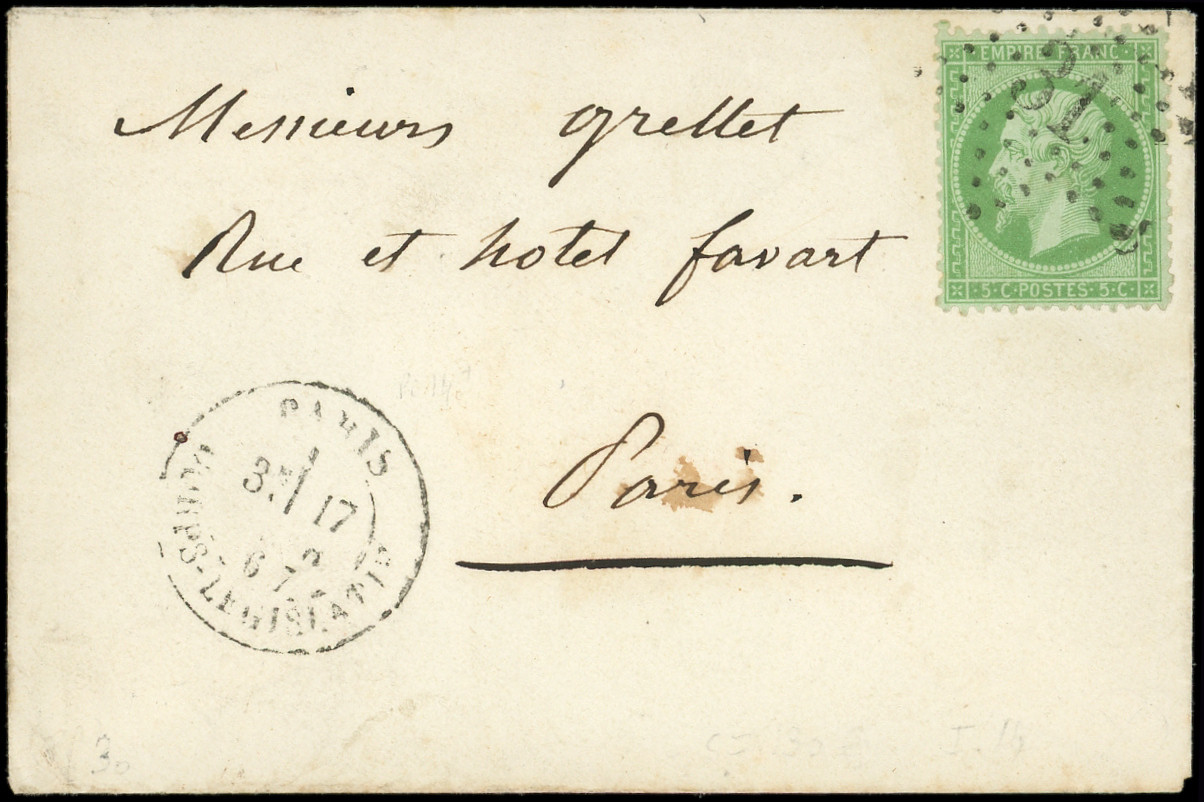 EMPIRE FRANC
5·C·POSTES·5·C·
Messieurs grellet
Rue et hotel favart
Paris.
PARIS
17
CORPS-LEGISLATIF
30